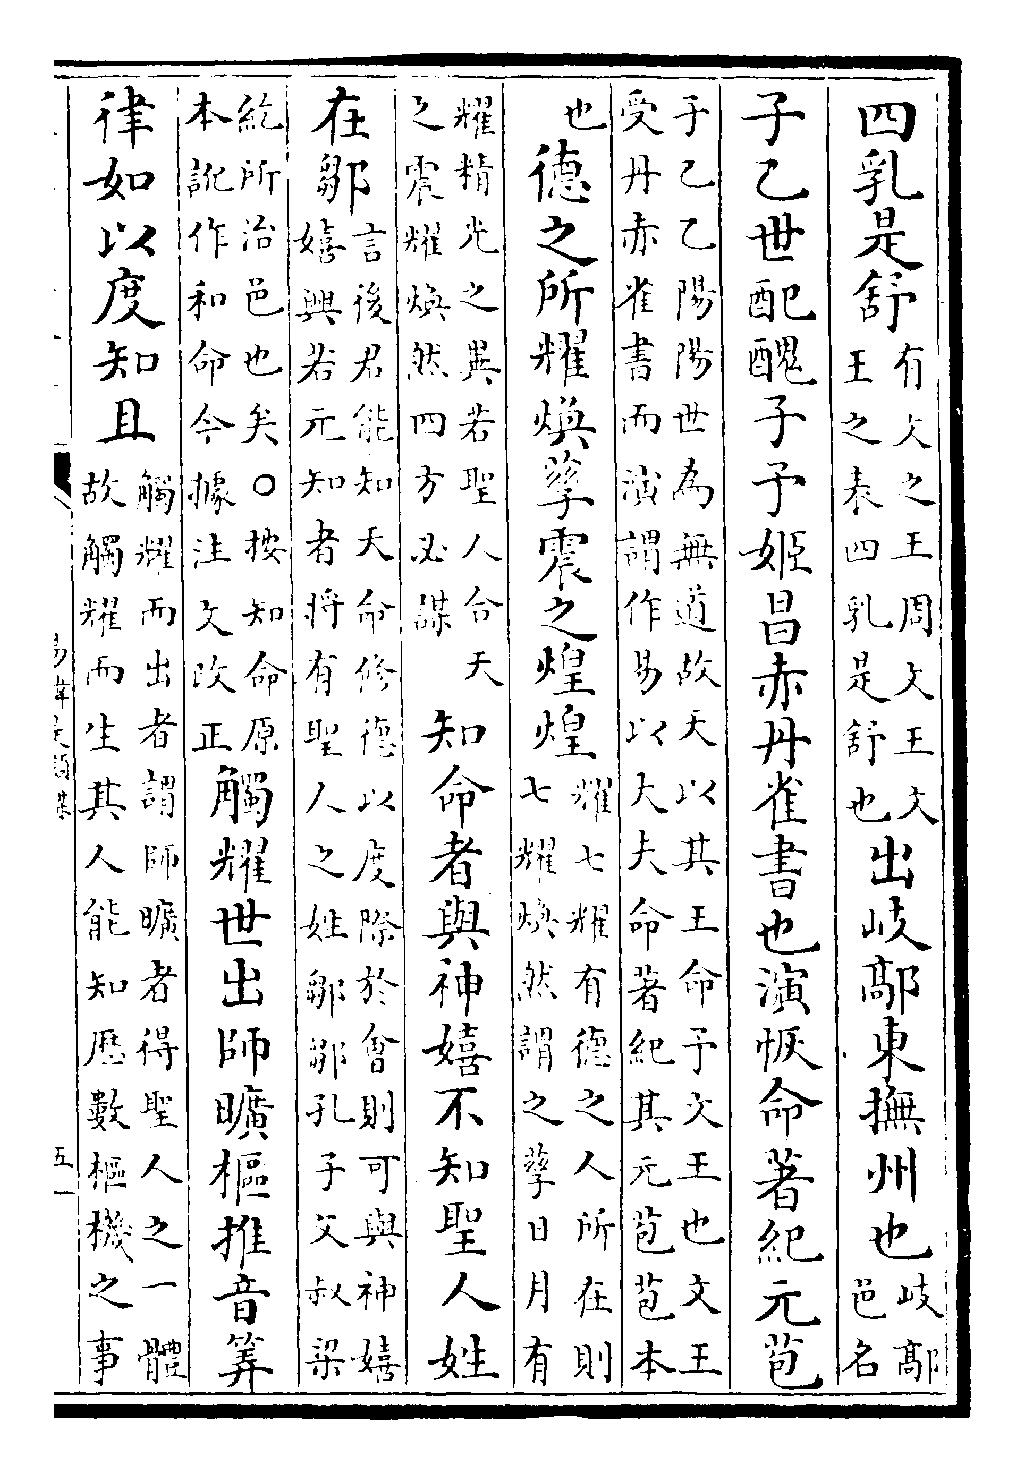 四乳是舒有文之王周文王文王之表四乳是舒也出岐鄗東撫州也岐鄗邑名
子己世配醜子予姬昌赤丹雀書也演恢命著紀元苞
于己乙陽陽世為無道故天以其王命予文王也文王受丹赤雀書而演謂作易以大夫命著紀其元苞苞本
也德之所耀煥孳震之煌煌耀七耀有德之人所在則七耀煥然謂之孳日月有
耀精光之異若聖人合天之震耀煥然四方必謀知命者與神嬉不知聖人姓
在鄒言後君能知天命修德以度際於會則可與神嬉嬉興若元知者將有聖人之姓鄒鄒孔子父叔梁
紇所治邑也矣○按知命原本訛作和命今據注文改正觸耀世出師曠樞推音筭
律如以度知且觸耀而出者謂師曠者得聖人之一體故觸耀而生其人能知歷數樞機之事
易緯是類謀
五